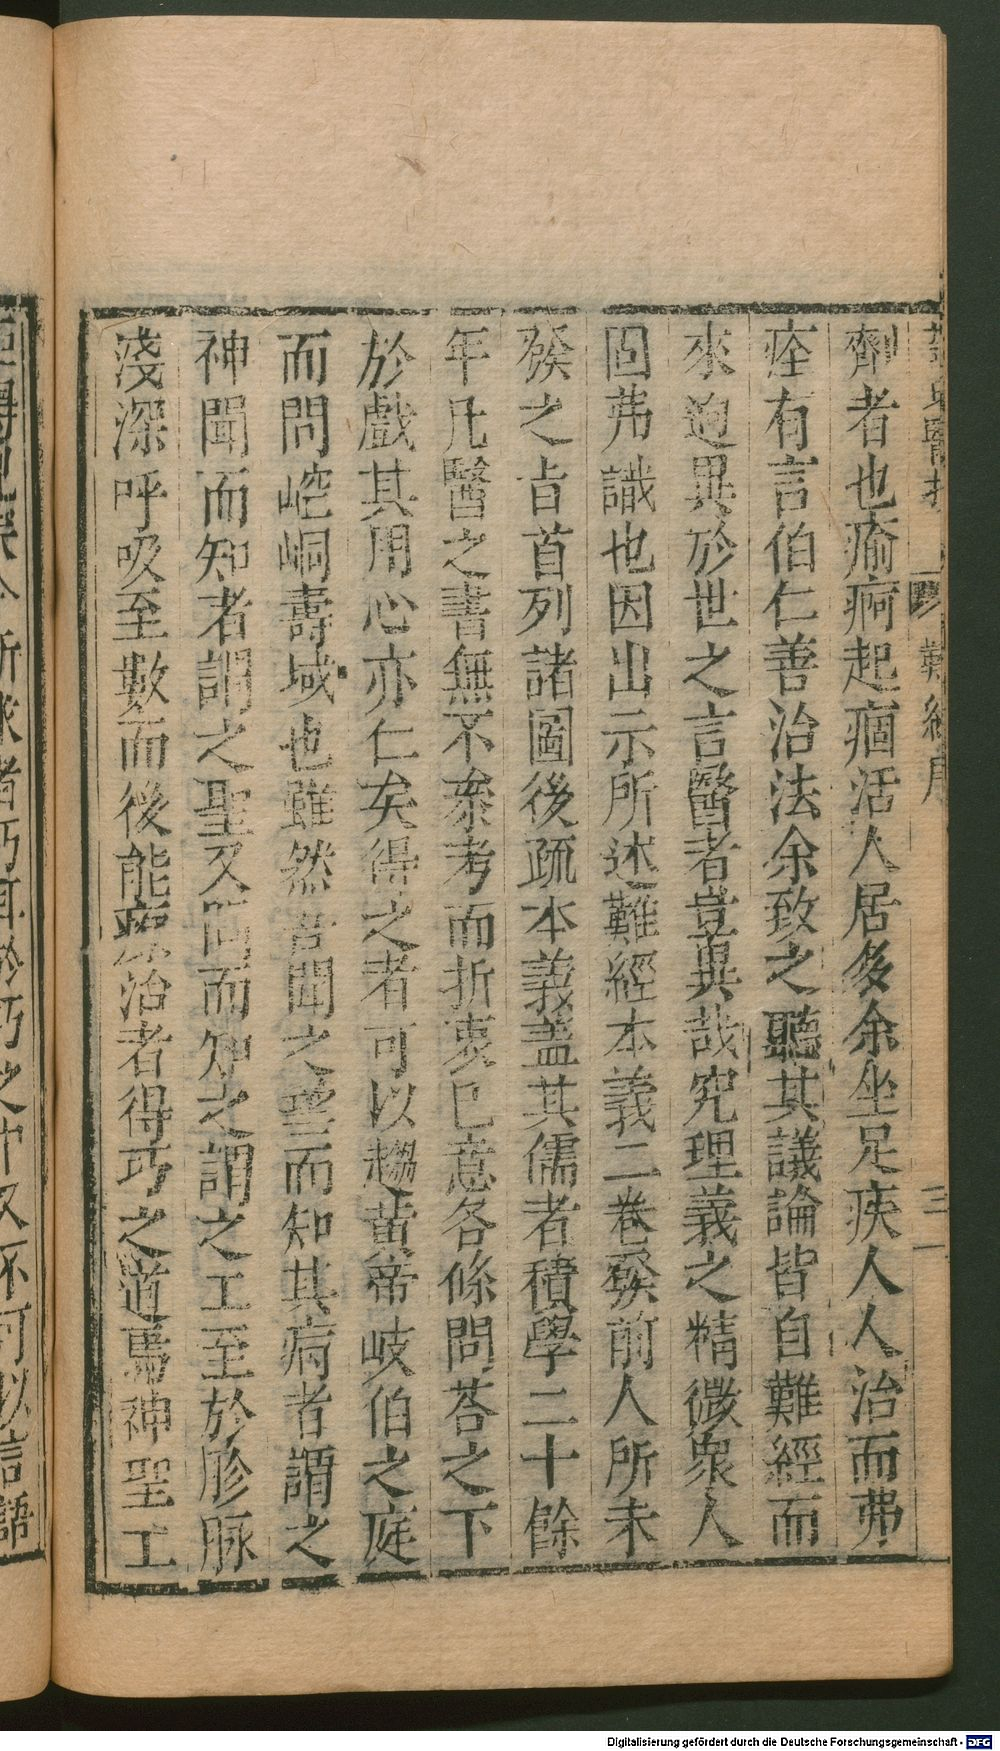 難經序
三
劑者也瘉痾起痼活人居多余坐足疾人人治而弗
痊有言伯仁善治法余致之聽其議論皆自難經而
來迨異於世之言醫者豈異哉究理義之精微衆人
固弗識也因出示所述難經本義二卷發前人所未
發之旨首列諸圖後疏本義蓋其儒者積學二十餘
年凡醫之書無不叅考而折衷已意各條問荅之下
於戲其用心亦仁矣得之者可以趨黄帝岐伯之庭
而問崆峒壽域也雖然吾聞之望而知其病者謂之
神聞而知者謂之聖又問而知之謂之工至於胗脉
淺深呼吸至數而後能療治者得巧之道焉神聖工
所求者巧耳於巧之中又不可以言語
Digitalisierung gefördert durch die Deutsche Forschungsgemeinschaft - DFG